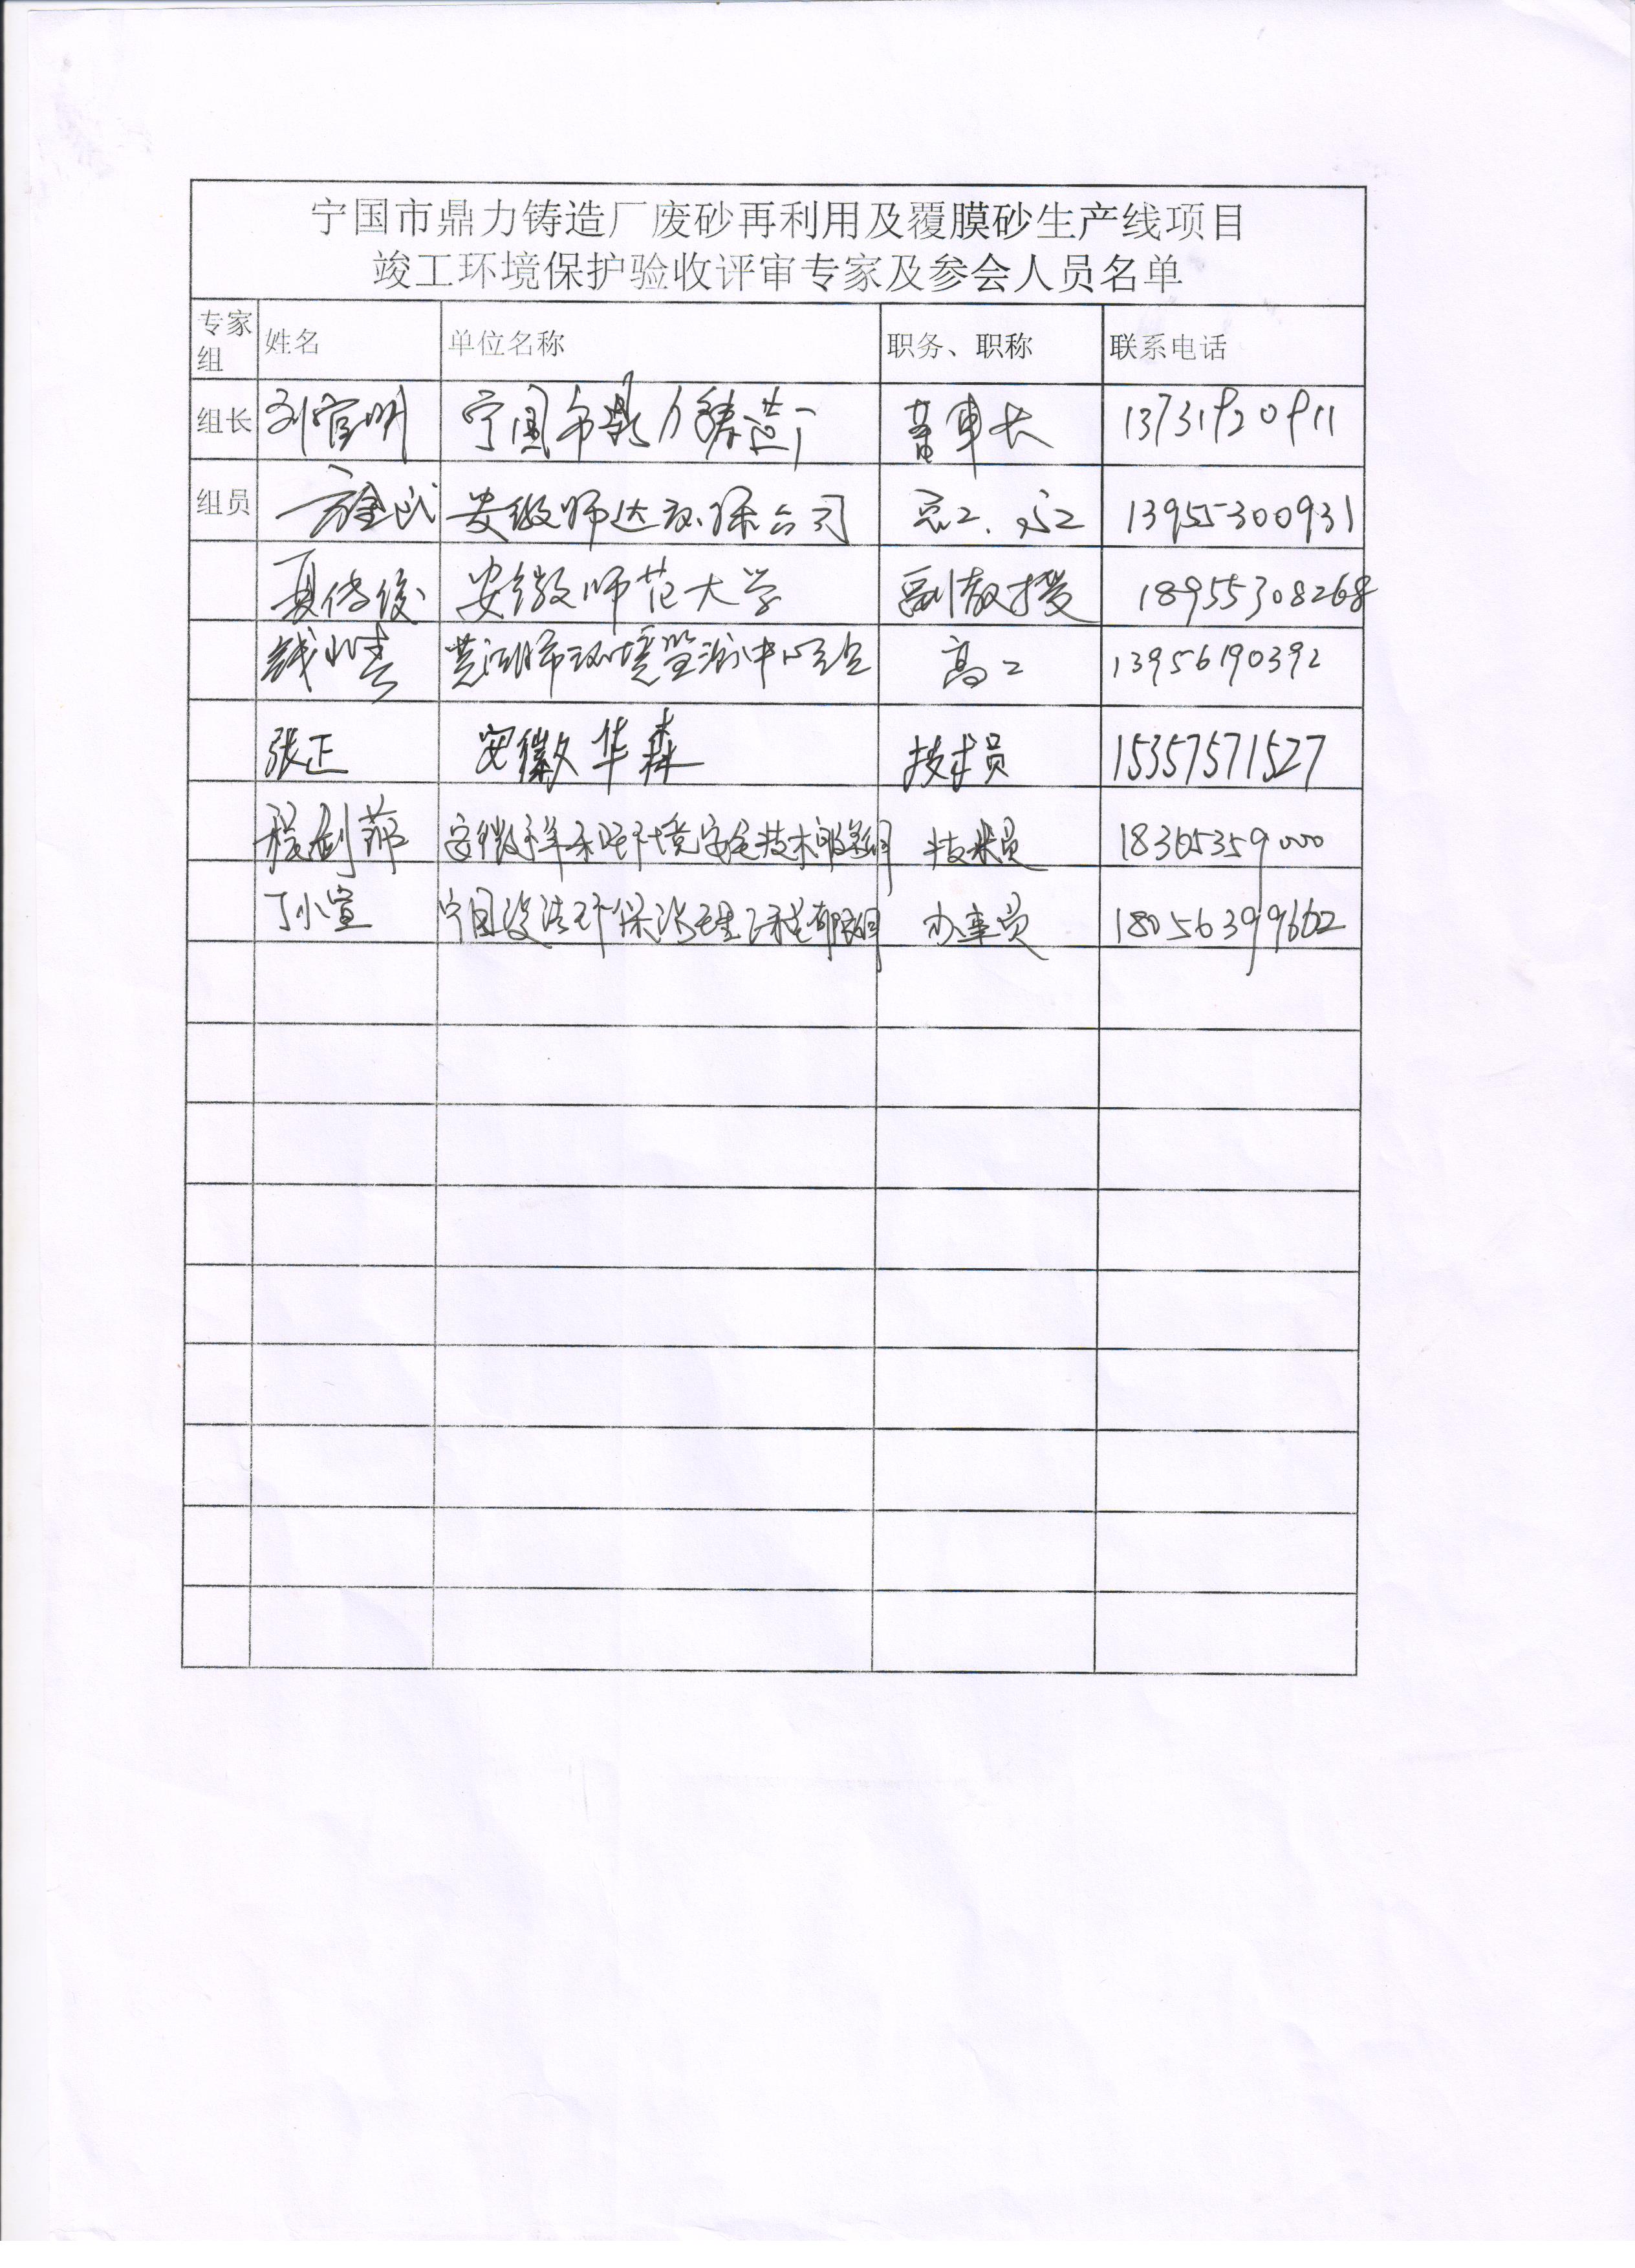 宁国市鼎力铸造厂废砂再利用及覆膜砂生产线项目
竣工环境保护验收评审专家及参会人员名单
专家组 姓名 单位名称 职务、职称 联系电话
组长 刘官明 宁国市鼎力铸造厂 董事长 13731920911
组员 安徽师达环保公司 总工、高工 13955300931
夏传俊 安徽师范大学 副教授 18955308268
钱 芜湖市环境监测中心站 高工 13956190392
张正 安徽华森 技术员 15357571527
程剑 安徽祥和环境安全技术服务 技术员 18365359000
丁小萱 宁国 环保治理工程有限公司 办事员 18056399602